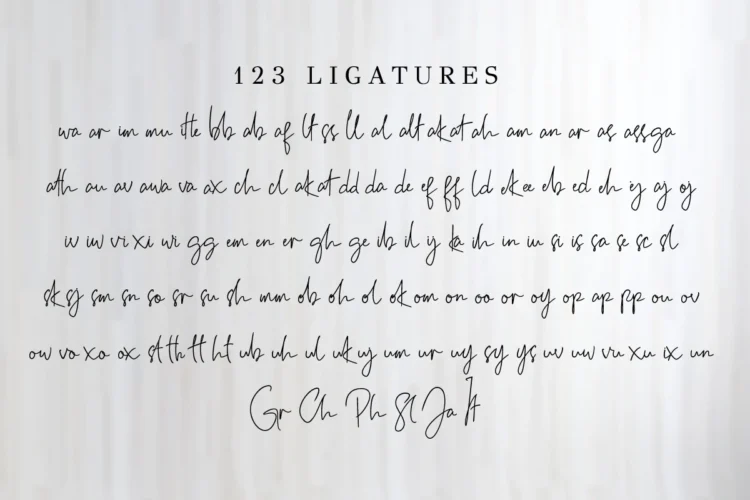 123 LIGATURES
wa ar im mu itte bb ab af lt ss ll al alt ak at ah am an ar as ass ga
ath au av awa va ax ch cl ak at dd da de ef ff ld ek ee eb ed eh ej aj oj
iv iw vi xi wi gg em en er gh ge ib il ij ka ih in iu si is sa se sc sl
sk sj sm sn so sr su sh mm ob oh ol ok om on oo or oy op ap pp ou ov
ow vo xo ox st th tt ht ub uh ul uk uj um ur uy sy ys uv uw vu xu ix un
Gr Ch Ph Sl Ja It